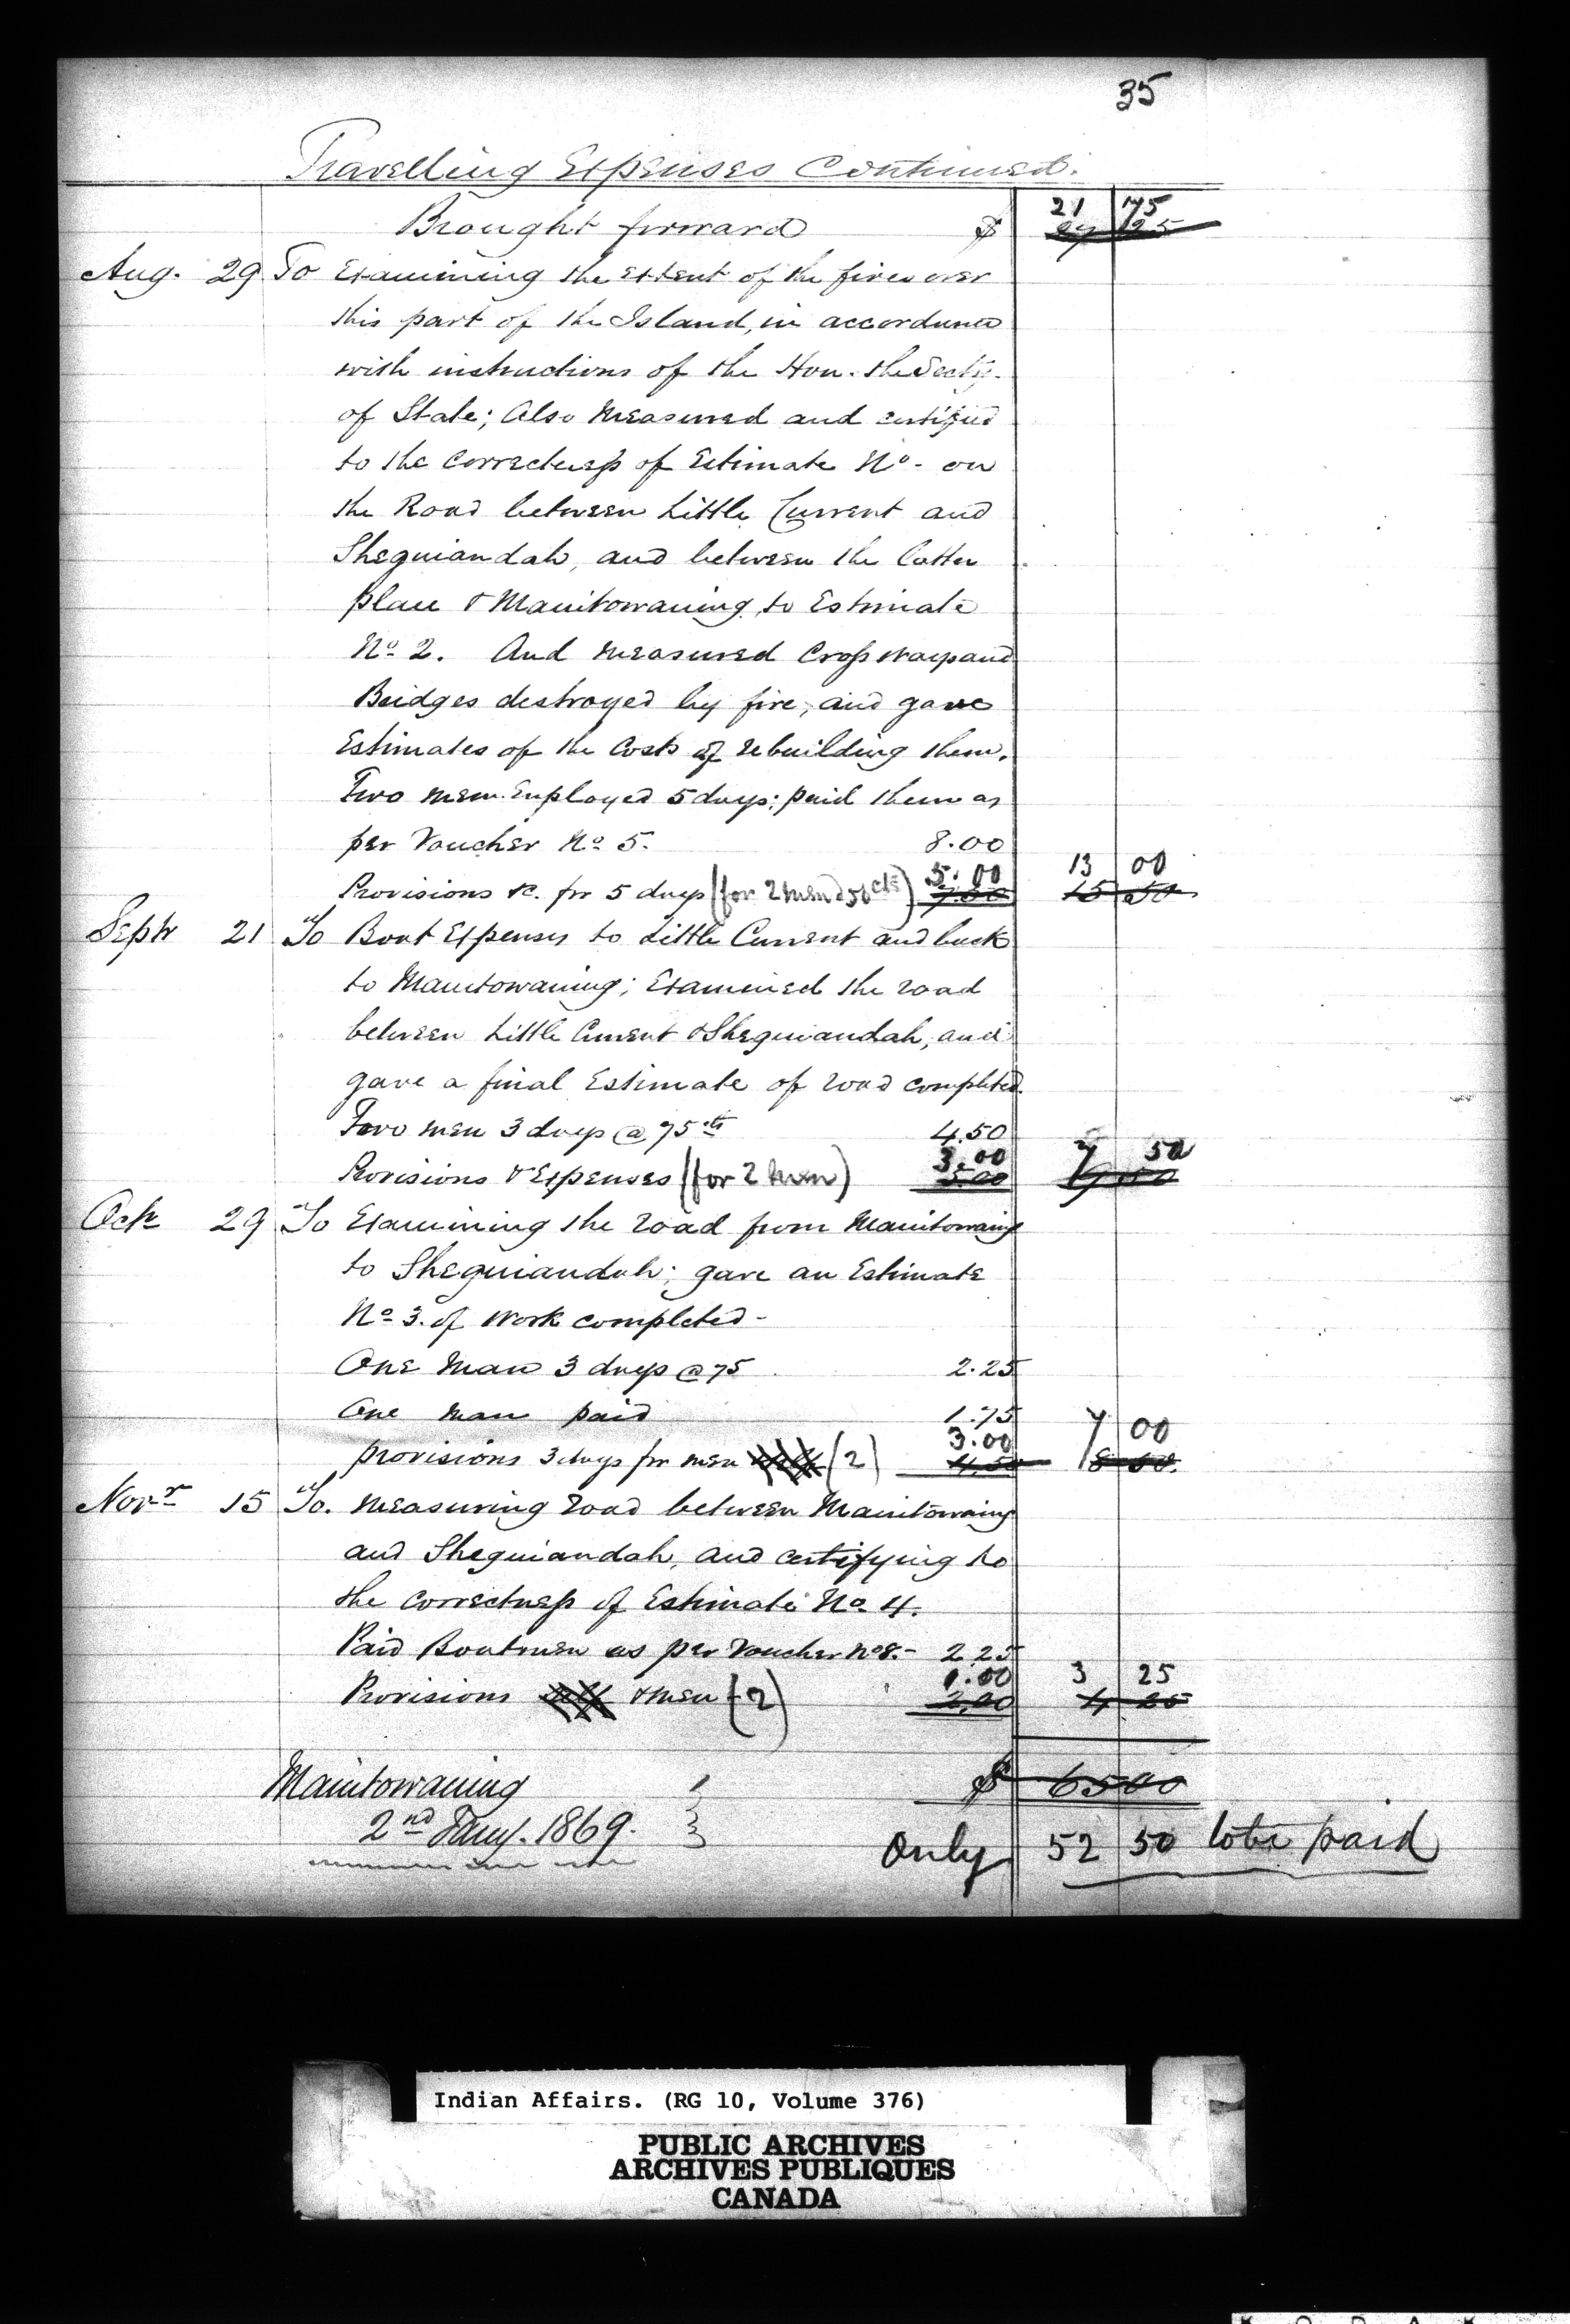 35
Travelling Expenses Continued.
Brought forward $ 21 75
27 25
Aug. 29 To Examining the extent of the fires over
this part of the Island, in accordance
with instructions of the Hon. the Secty.
of State; Also Measured and certified
to the correctness of Estimate No. on
the Road between Little Current and
Sheguiandah, and between the latter
place & Manitowaning, to Estimate
No. 2. And measured Crossways and
Bridges destroyed by fire, and gave
Estimates of the Costs of rebuilding them.
Two men Employed 5 days; paid them as
per Voucher No. 5. 8.00
Provisions &c. for 5 days (for 2 men @ 50 cts) 5.00 13 00
7.50 15 50
Septr 21 To Boat Expenses to Little Current and back
to Manitowaning; Examined the road
between Little Current & Sheguiandah, and
gave a final Estimate of road completed.
Two men 3 days @ 75 cts 4.50
Provisions & Expenses (for 2 men) 3.00 7 50
5.00 9 50
Octr 29 To Examining the road from Manitowaning
to Sheguiandah; gave an Estimate
No. 3. of work completed -
One Man 3 days @ 75 2.25
One man paid 1.75
provisions 3 days for men (2) 3.00 7 00
4.50 8 50.
Novr 15 To. measuring road between Manitowaning
and Sheguiandah, and certifying to
the correctness of Estimate No. 4.
Paid Boatmen as per Voucher No 8. - 2.25
Provisions self & men (2) 1.00 3 25
2.00 4 25
$ 65 00
Manitowaning
2nd Jany. 1869.
Only 52 50 to be paid
Indian Affairs. (RG 10, Volume 376)
PUBLIC ARCHIVES
ARCHIVES PUBLIQUES
CANADA